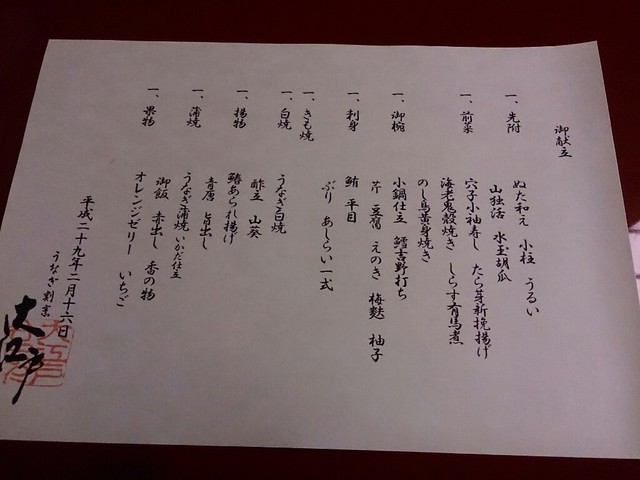 御献立
一、先附
ぬた和え 小柱 うるい
山独活 水玉胡瓜
一、前菜
穴子小袖寿し たら芽新挽揚げ
海老鬼殻焼き しらす有馬煮
のし鳥黄身焼き
一、御椀
小鍋仕立 鱈吉野打ち
芹 豆腐 えのき 梅麩 柚子
一、刺身
鮪 平目
ぶり あしらい一式
一、きも焼
一、白焼
うなぎ白焼
酢立 山葵
一、揚物
鰆あられ揚げ
青唐 旨出し
一、蒲焼
うなぎ蒲焼 いかだ仕立
御飯 赤出し 香の物
一、果物
オレンジゼリー いちご
平成二十九年二月十六日
うなぎ割烹
大江戸